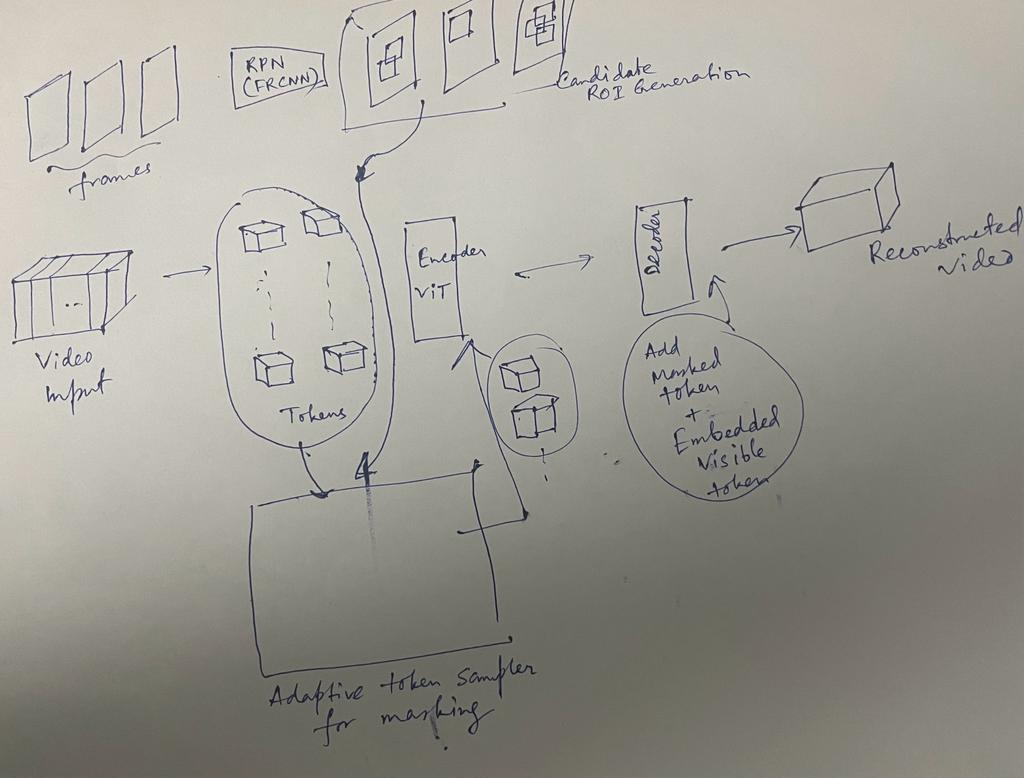 RPN
(FRCNN)
Candidate
ROI Generation
frames
Video
Input
Tokens
Encoder
ViT
Decoder
Reconstructed
Video
Add
Masked
token
+
Embedded
Visible
token
Adaptive token sampler
for masking